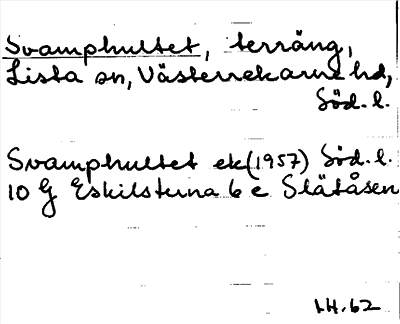 Svamphultet, terräng,
Lista sn, Västerrekarne hd,
Söd. l.
Svamphultet ek(1957) Söd. l.
10 G Eskilstuna 6 e Slätåsen
I.H. 62